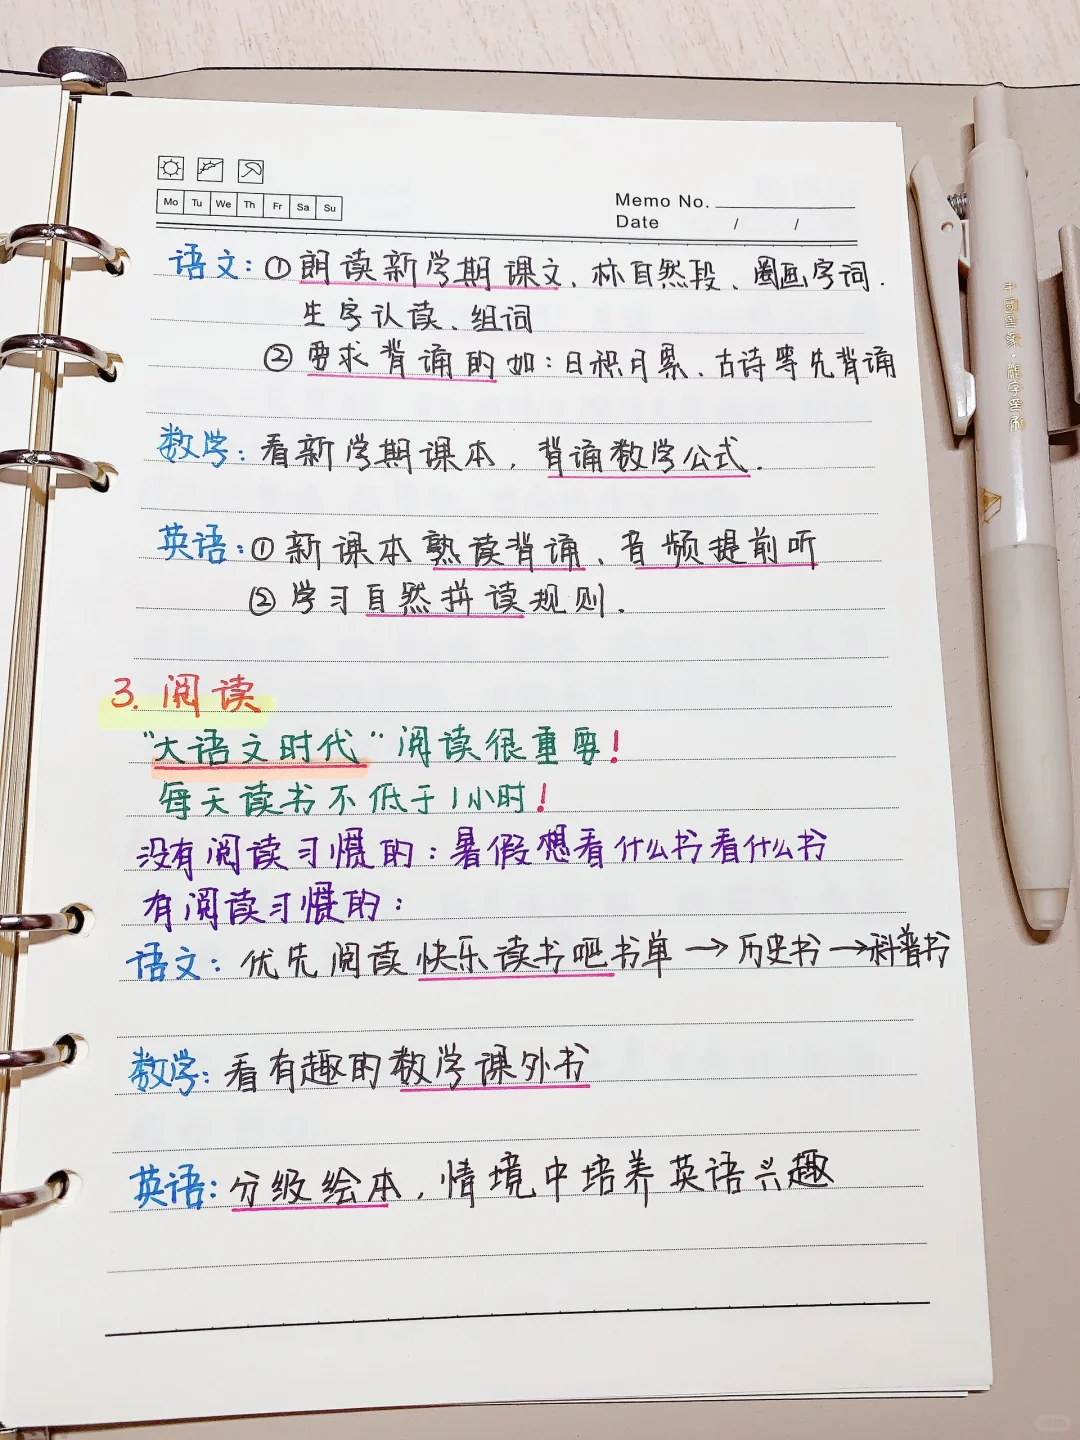 Mo Tu We Th Fr Sa Su
Memo No.
Date / /
语文：①朗读新学期课文、标自然段、圈画字词.
生字认读、组词
②要求背诵的如：日积月累、古诗等先背诵
数学：看新学期课本，背诵数学公式.
英语：①新课本熟读背诵、音频提前听
②学习自然拼读规则.
3. 阅读
"大语文时代"阅读很重要！
每天读书不低于1小时！
没有阅读习惯的：暑假想看什么书看什么书
有阅读习惯的：
语文：优先阅读快乐读书吧书单→历史书→科普书
数学：看有趣的数学课外书
英语：分级绘本，情境中培养英语兴趣